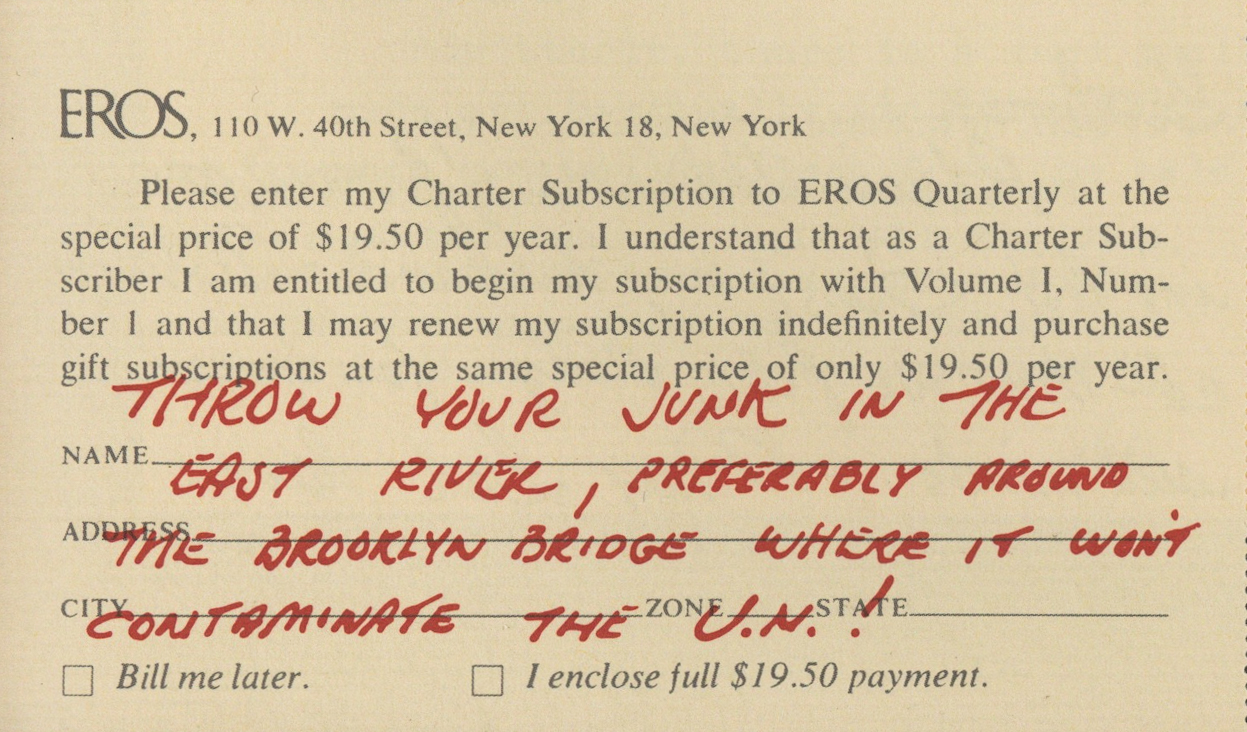 EROS, 110 W. 40th Street, New York 18, New York
Please enter my Charter Subscription to EROS Quarterly at the
special price of $19.50 per year. I understand that as a Charter Sub-
scriber I am entitled to begin my subscription with Volume I, Num-
ber 1 and that I may renew my subscription indefinitely and purchase
gift subscriptions at the same special price of only $19.50 per year.
THROW YOUR JUNK IN THE
NAME
EAST RIVER, PREFERABLY AROUND
ADDRESS
THE BROOKLYN BRIDGE WHERE IT WON'T
CITY ZONE STATE
CONTAMINATE THE U.N.!
Bill me later. I enclose full $19.50 payment.